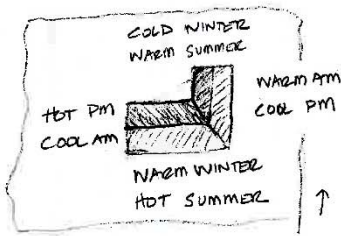 COLD WINTER
WARM SUMMER
HOT PM
COOL AM
WARM AM
COOL PM
WARM WINTER
HOT SUMMER